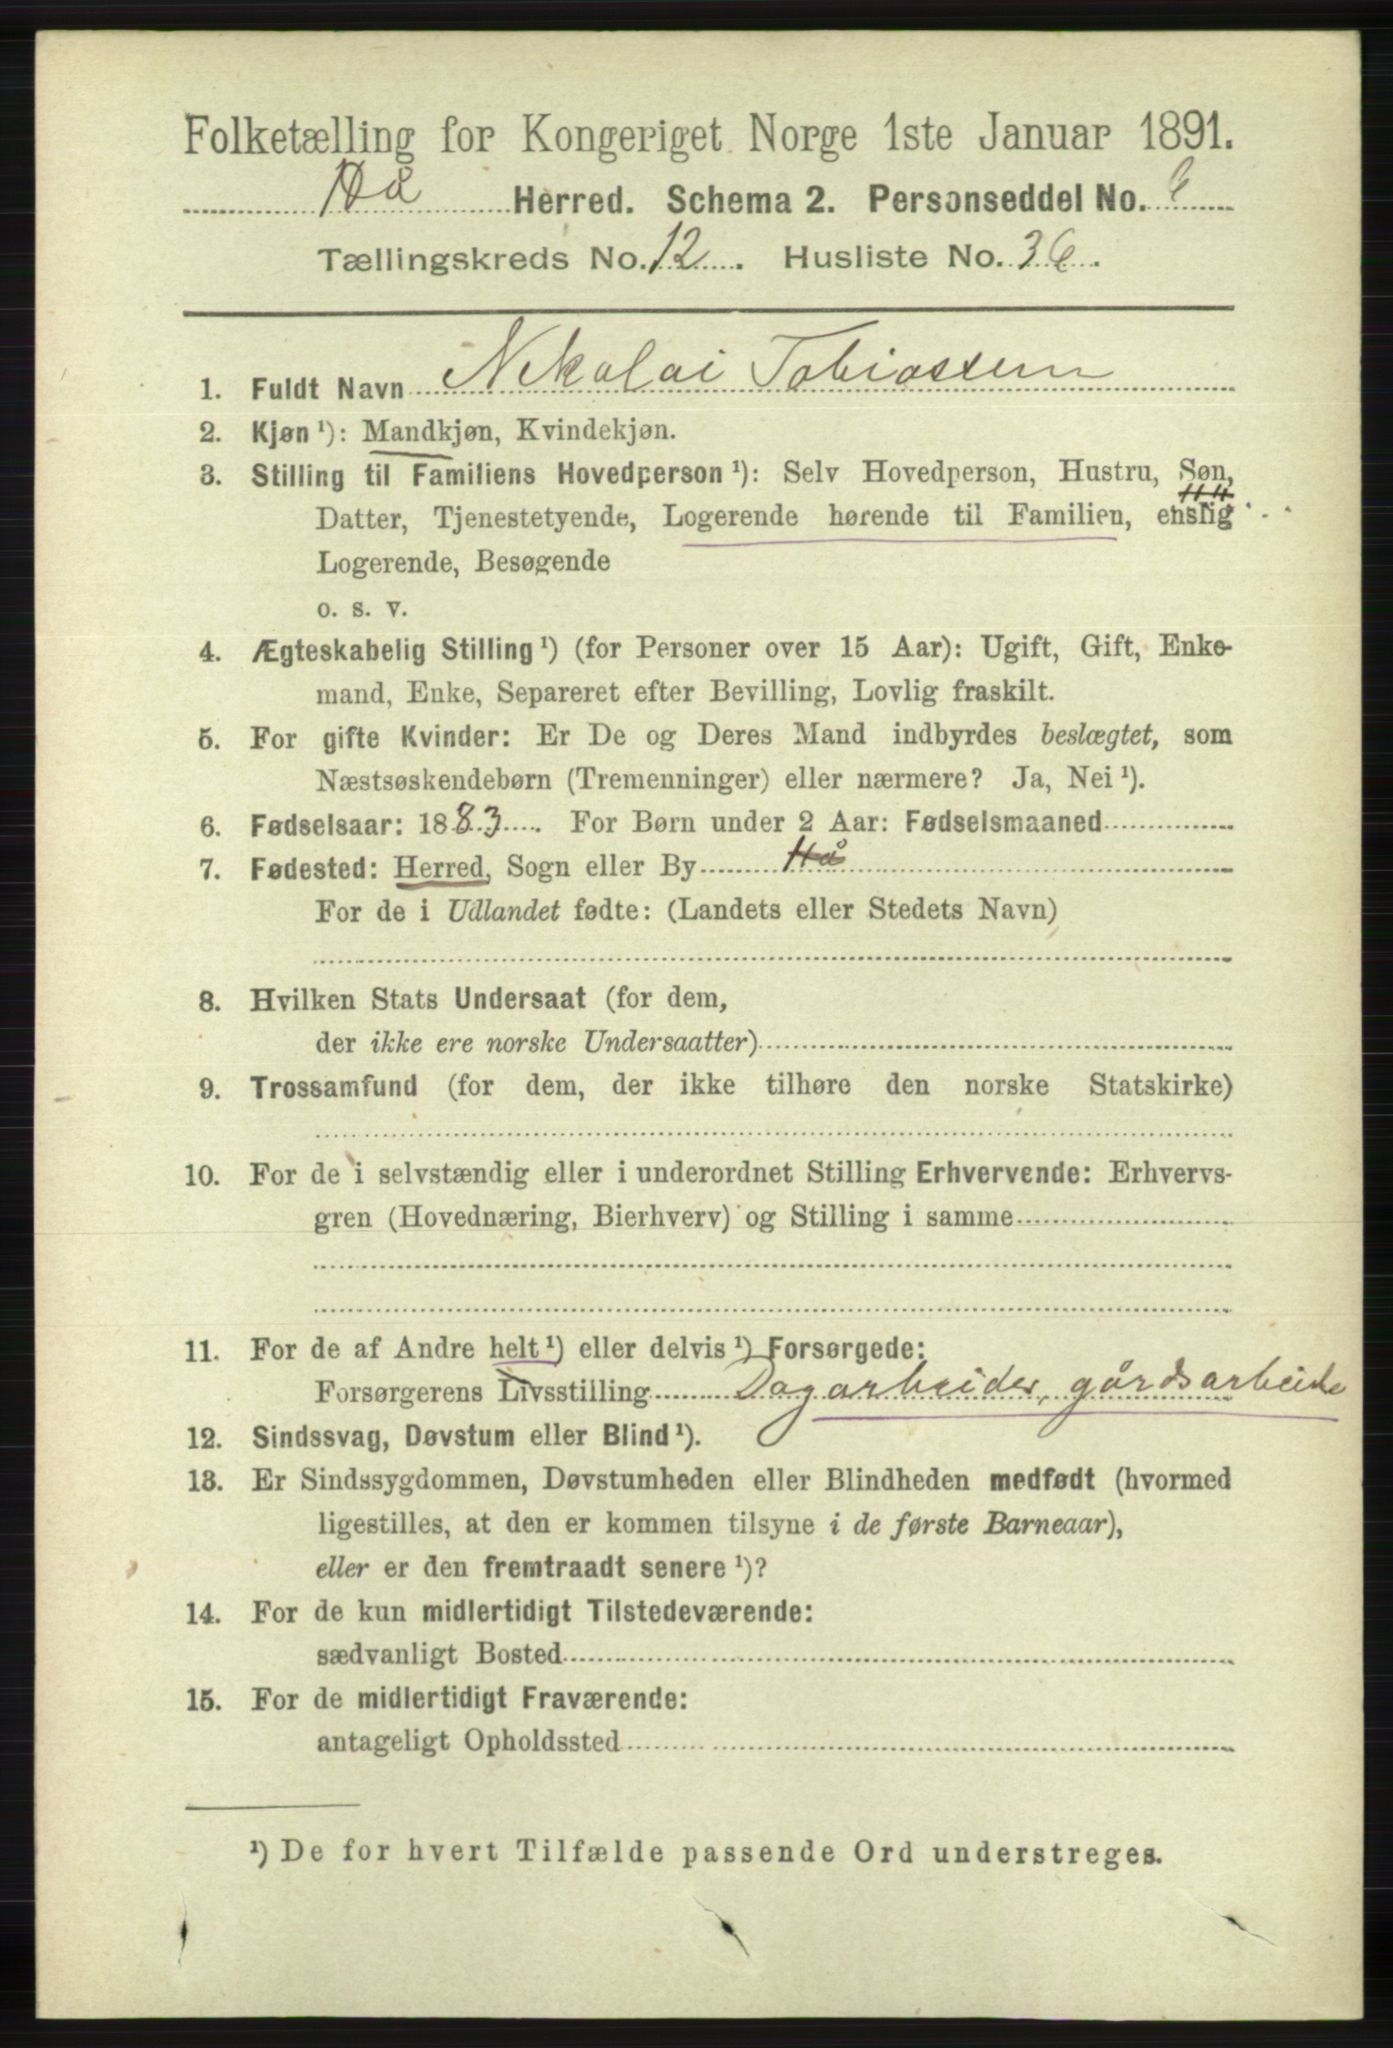 Folketælling for Kongeriget Norge 1ste Januar 1891.
Hå Herred. Schema 2. Personseddel No. 6
Tællingskreds No. 12. Husliste No. 36.
1. Fuldt Navn Nikolai Tobiassen
2. Kjøn ¹): Mandkjøn, Kvindekjøn.
3. Stilling til Familiens Hovedperson ¹): Selv Hovedperson, Hustru, Søn,
Datter, Tjenestetyende, Logerende hørende til Familien, enslig
Logerende, Besøgende
o. s. v.
4. Ægteskabelig Stilling ¹) (for Personer over 15 Aar): Ugift, Gift, Enke-
mand, Enke, Separeret efter Bevilling, Lovlig fraskilt.
5. For gifte Kvinder: Er De og Deres Mand indbyrdes beslægtet, som
Næstsøskendebørn (Tremenninger) eller nærmere? Ja, Nei ¹).
6. Fødselsaar: 1883. For Børn under 2 Aar: Fødselsmaaned
7. Fødested: Herred, Sogn eller By Hå
For de i Udlandet fødte: (Landets eller Stedets Navn)
8. Hvilken Stats Undersaat (for dem,
der ikke ere norske Undersaatter)
9. Trossamfund (for dem, der ikke tilhøre den norske Statskirke)
10. For de i selvstændig eller i underordnet Stilling Erhvervende: Erhvervs-
gren (Hovednæring, Bierhverv) og Stilling i samme
11. For de af Andre helt ¹) eller delvis ¹) Forsørgede:
Forsørgerens Livsstilling Dagarbeider, gårdsarbeide
12. Sindssvag, Døvstum eller Blind ¹).
13. Er Sindssygdommen, Døvstumheden eller Blindheden medfødt (hvormed
ligestilles, at den er kommen tilsyne i de første Barneaar),
eller er den fremtraadt senere ¹)?
14. For de kun midlertidigt Tilstedeværende:
sædvanligt Bosted
15. For de midlertidigt Fraværende:
antageligt Opholdssted
¹) De for hvert Tilfælde passende Ord understreges.